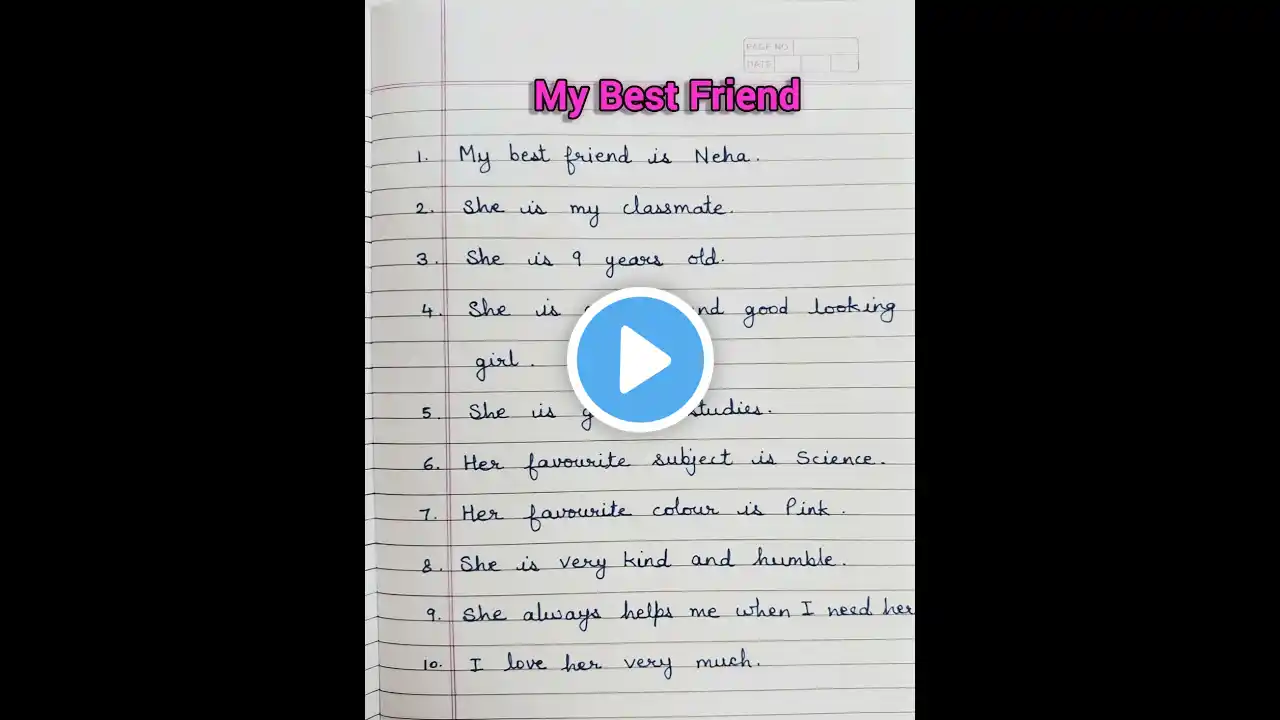 PAGE NO
DATE
My Best Friend
1. My best friend is Neha.
2. She is my classmate.
3. She is 9 years old.
4. She is nd good looking
girl.
5. She is g studies.
6. Her favourite subject is Science.
7. Her favourite colour is Pink.
8. She is very kind and humble.
9. She always helps me when I need her
10. I love her very much.